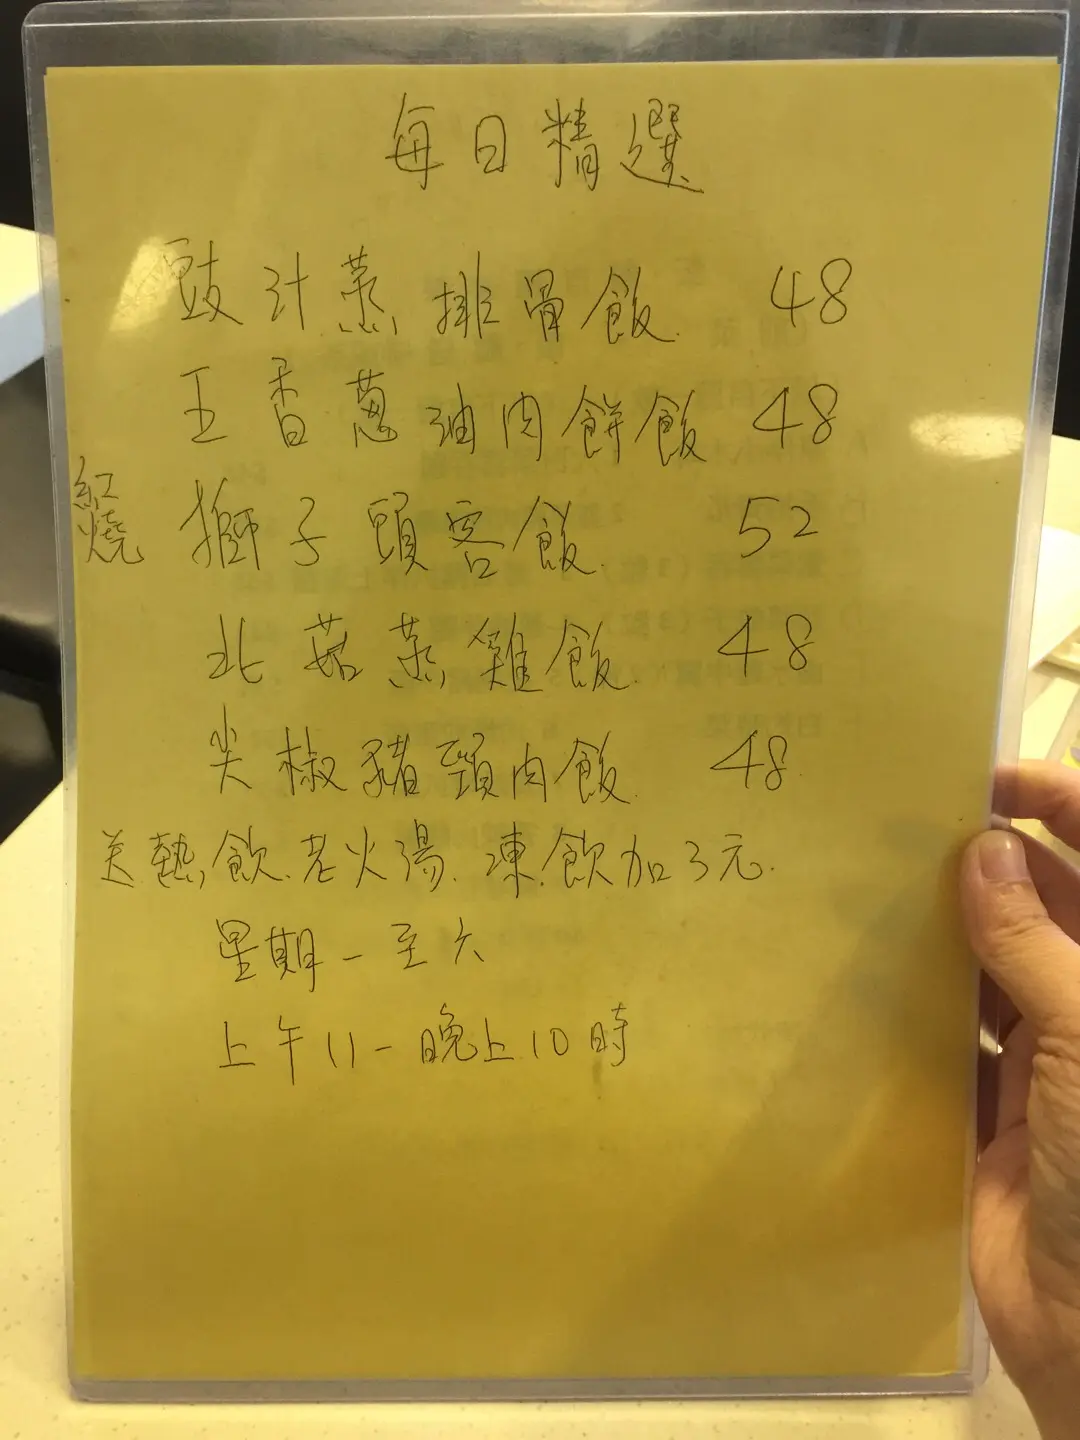 每日精選
豉汁蒸排骨飯 48
五香蔥油肉餅飯 48
紅燒獅子頭客飯 52
北菇蒸雞飯 48
尖椒豬頸肉飯 48
送熱飲.老火湯.凍飲加3元.
星期一至六
上午11-晚上10時